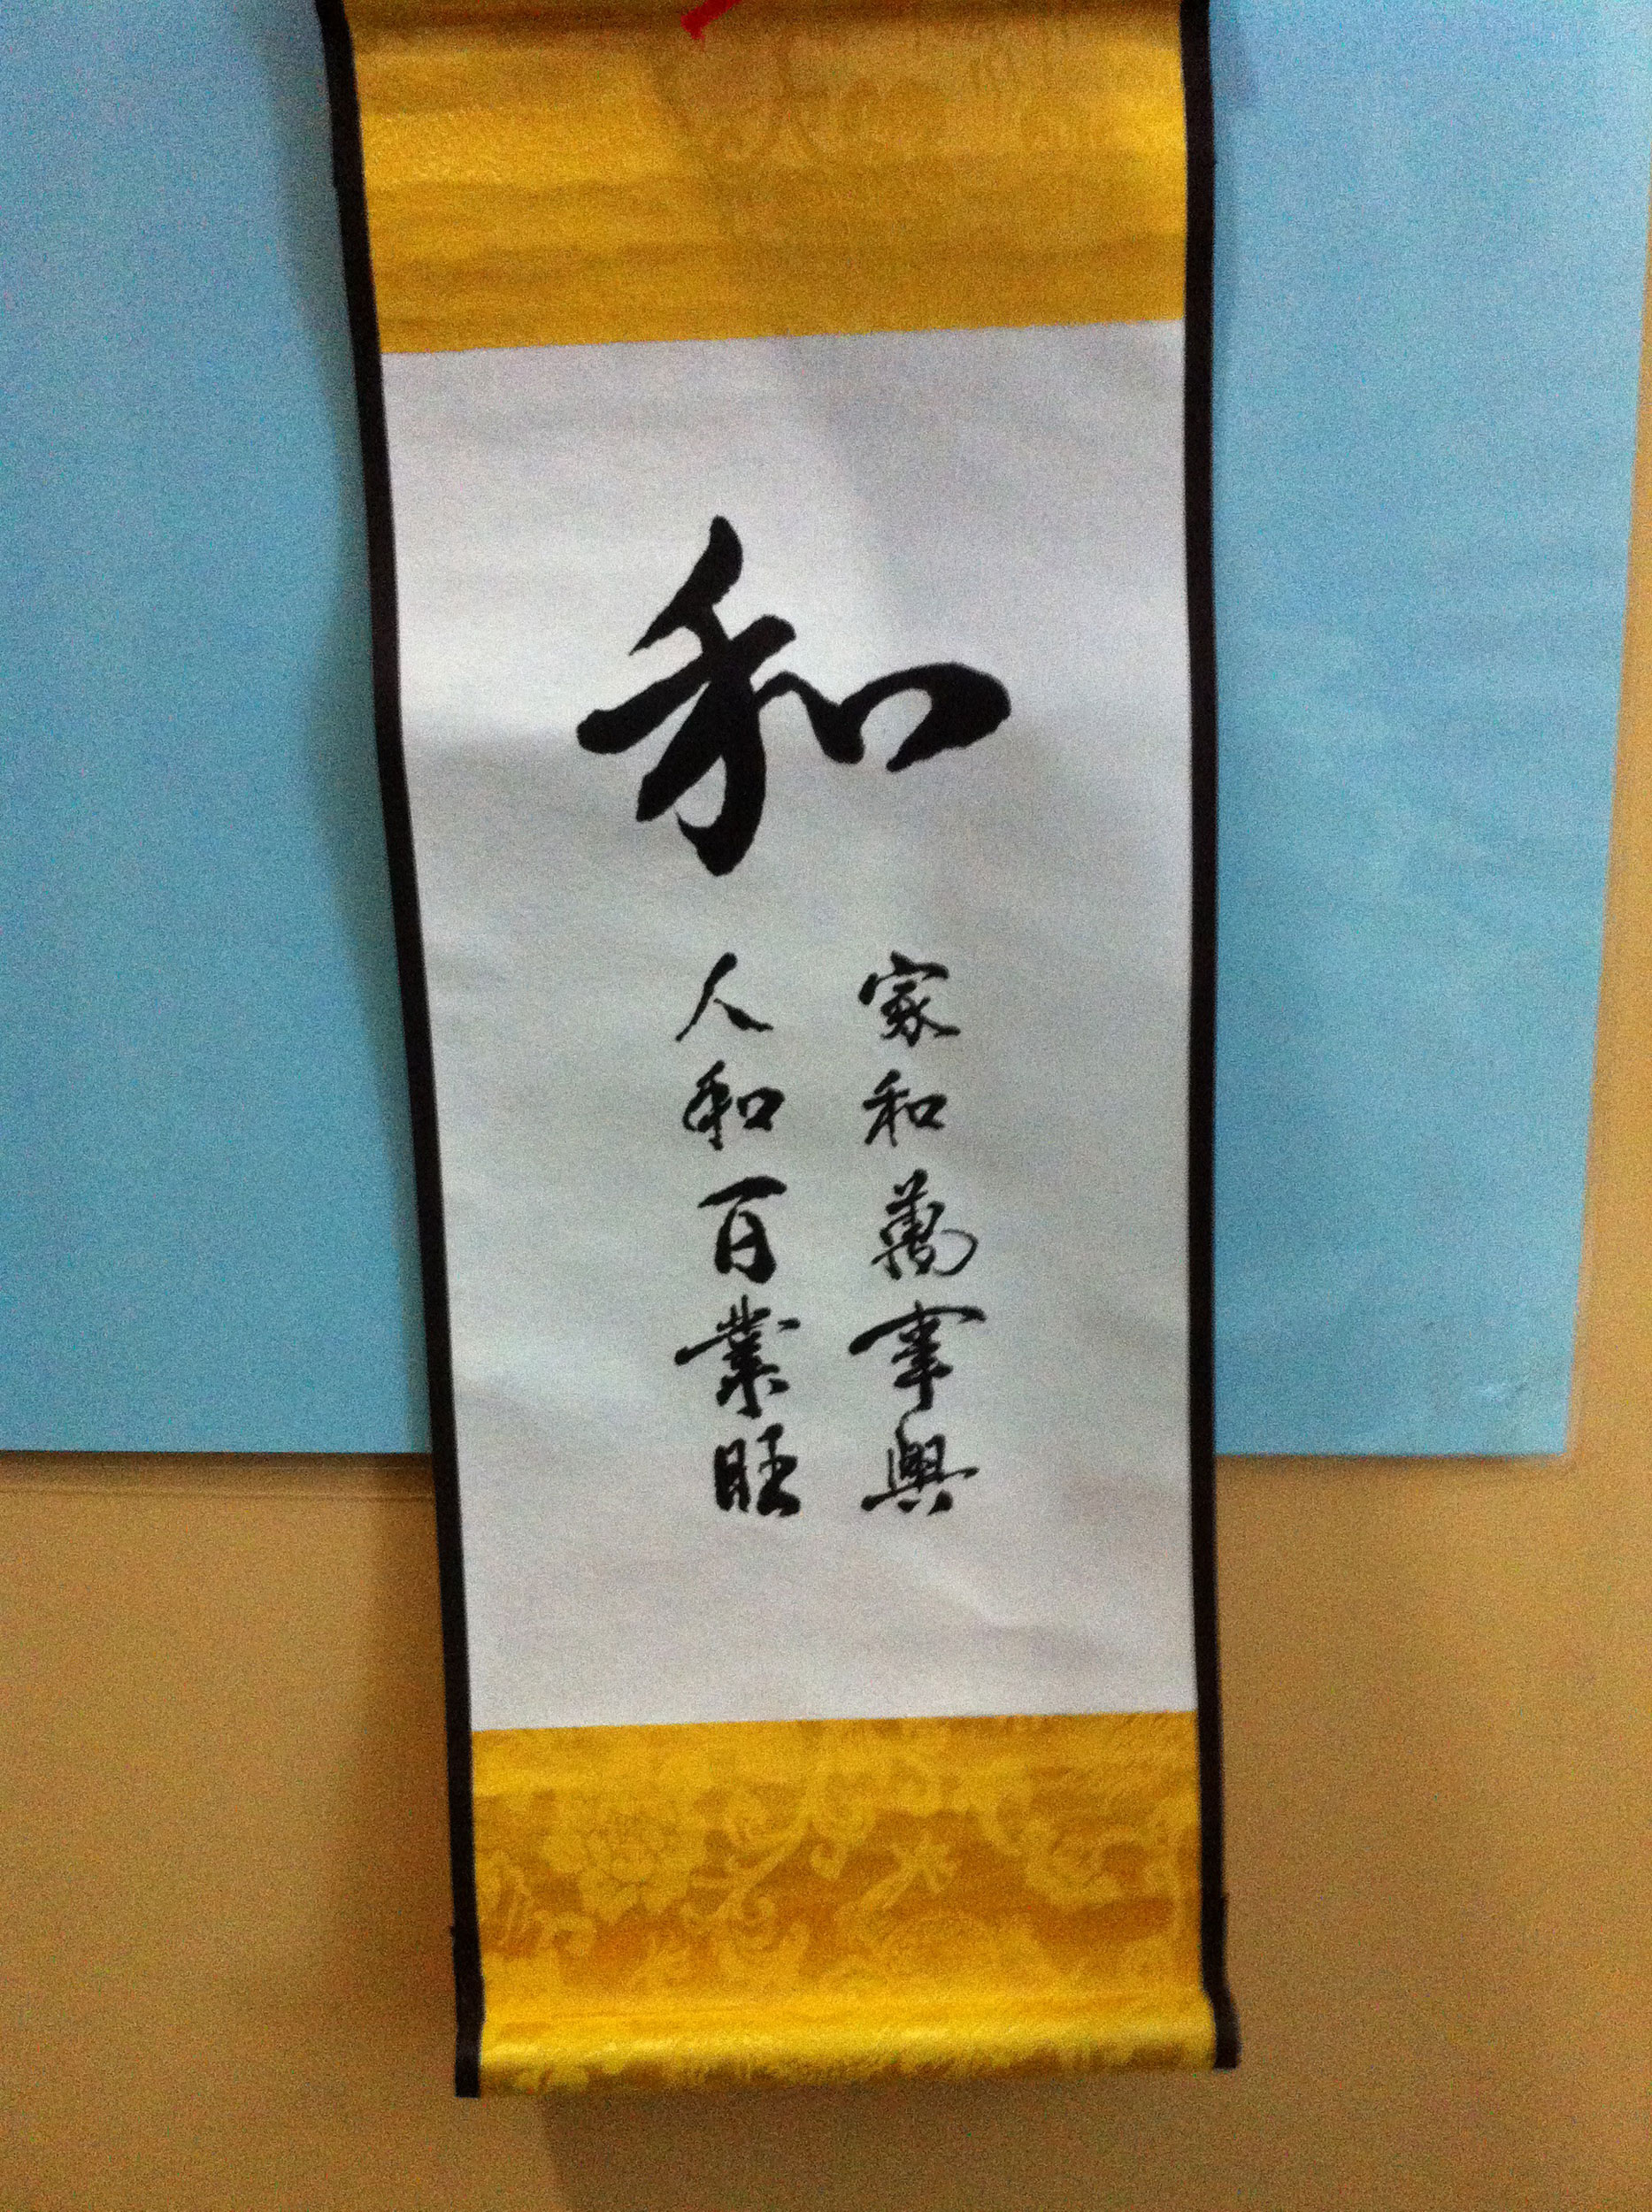 和
家和萬事興
人和百業旺